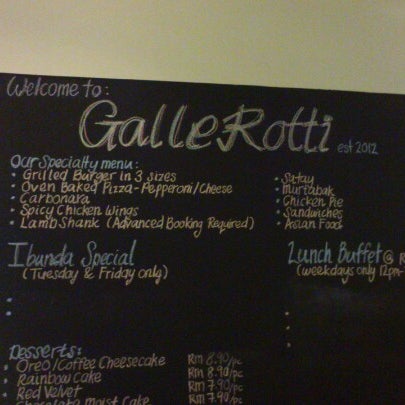 Welcome to:
GalleRotti est 2012
Our Specialty menu:
• Grilled Burger in 3 sizes
• Oven Baked Pizza - Pepperoni/Cheese
• Carbonara
• Spicy Chicken Wings
• Lamb Shank (Advanced Booking Required)
• Satay
• Murtabak
• Chicken Pie
• Sandwiches
• Asian Food
Ibunda Special
(Tuesday & Friday only)
Lunch Buffet @ R
(weekdays only 12pm-
Desserts:
• Oreo/Coffee Cheesecake RM 8.90/pc
• Rainbow Cake RM 8.90/pc
• Red Velvet RM 7.90/pc
• Chocolate Moist Cake RM 7.90/pc